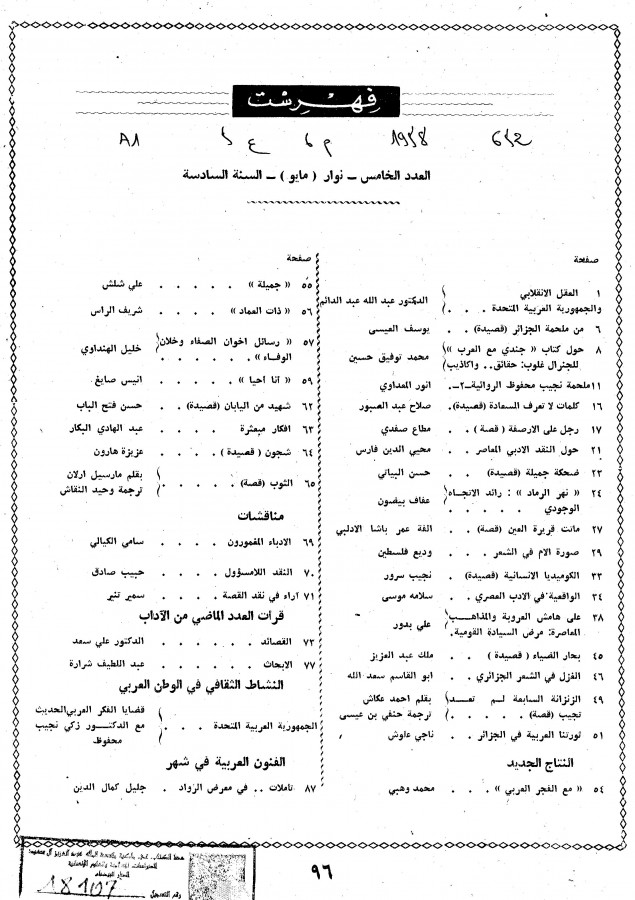 فهرست
العدد الخامس ــ نوار ( مايو ) ــ السنة السادسة
صفحة
١ العقل الانقلابي
والجمهورية العربية المتحدة . . . الدكتور عبد الله عبد الدائم
٦ من ملحمة الجزائر (قصيدة) . . يوسف العيسى
٨ حول كتاب « جندي مع العرب »
للجنرال غلوب: حقائق.. واكاذيب محمد توفيق حسين
١١ ملحمة نجيب محفوظ الروائية ــ٢ــ. انور المعداوي
١٦ كلمات لا تعرف السعادة (قصيدة). صلاح عبد الصبور
١٧ رجل على الارصفة ( قصة) . . مطاع صفدي
٢١ حول النقد الادبي المعاصر . . محيي الدين فارس
٢٣ ضحكة جميلة (قصيدة) . . حسن البياتي
٢٤ « نهر الرماد » : رائد الاتجاه
الوجودي . . . . . عفاف بيضون
٢٧ ماتت قريرة العين (قصة) . . الفة عمر باشا الادلبي
٢٩ صورة الام في الشعر . . . وديع فلسطين
٣٣ الكوميديا الانسانية (قصيدة) . نجيب سرور
٣٤ الواقعية في الادب العصري . . سلامه موسى
٣٨ على هامش العروبة والمذاهب
المعاصرة: مرض السيادة القومية. علي بدور
٤٥ بحار الضياء ( قصيدة ) . . ملك عبد العزيز
٤٦ الغزل في الشعر الجزائري . . ابو القاسم سعد الله
٤٩ الزنزانة السابعة لم تعد بقلم احمد عكاش
تجيب (قصة) . . . . ترجمة حنفي بن عيسى
٥١ ثورتنا العربية في الجزائر . . ناجي علوش
النتاج الجديد
٥٤ « مع الفجر العربي » . . . محمد وهبي
صفحة
٥٥ « جميلة » . . . . . علي شلش
٥٦ « ذات العماد » . . . . شريف الراس
٥٧ « رسائل اخوان الصفاء وخلان
الوفاء » . . . . . خليل الهنداوي
٥٩ « انا احيا » . . . . . انيس صايغ
٦٢ شهيد من اليابان (قصيدة) . . حسن فتح الباب
٦٣ افكار مبعثرة . . . . عبد الهادي البكار
٦٤ شجون ( قصيدة) . . . عزيزة هارون
٦٥ الثوب (قصة) . . . . بقلم مارسيل ارلان
ترجمة وحيد النقاش
مناقشات
٦٩ الادباء المغمورون . . . سامي الكيالي
٧٠ النقد اللامسؤول . . . . حبيب صادق
٧١ آراء في نقد القصة . . . . سمير تنير
قرأت العدد الماضي من الآداب
٧٣ القصائد . . . . . الدكتور علي سعد
٧٧ الابحاث . . . . . عبد اللطيف شرارة
النشاط الثقافي في الوطن العربي
الجمهورية العربية المتحدة . . . قضايا الفكر العربي الحديث
مع الدكتور زكي نجيب
محفوظ
الفنون العربية في شهر
٨٧ تاملات .. في معرض الرواد . جليل كمال الدين
٩٦
18107
رقم التسجيل